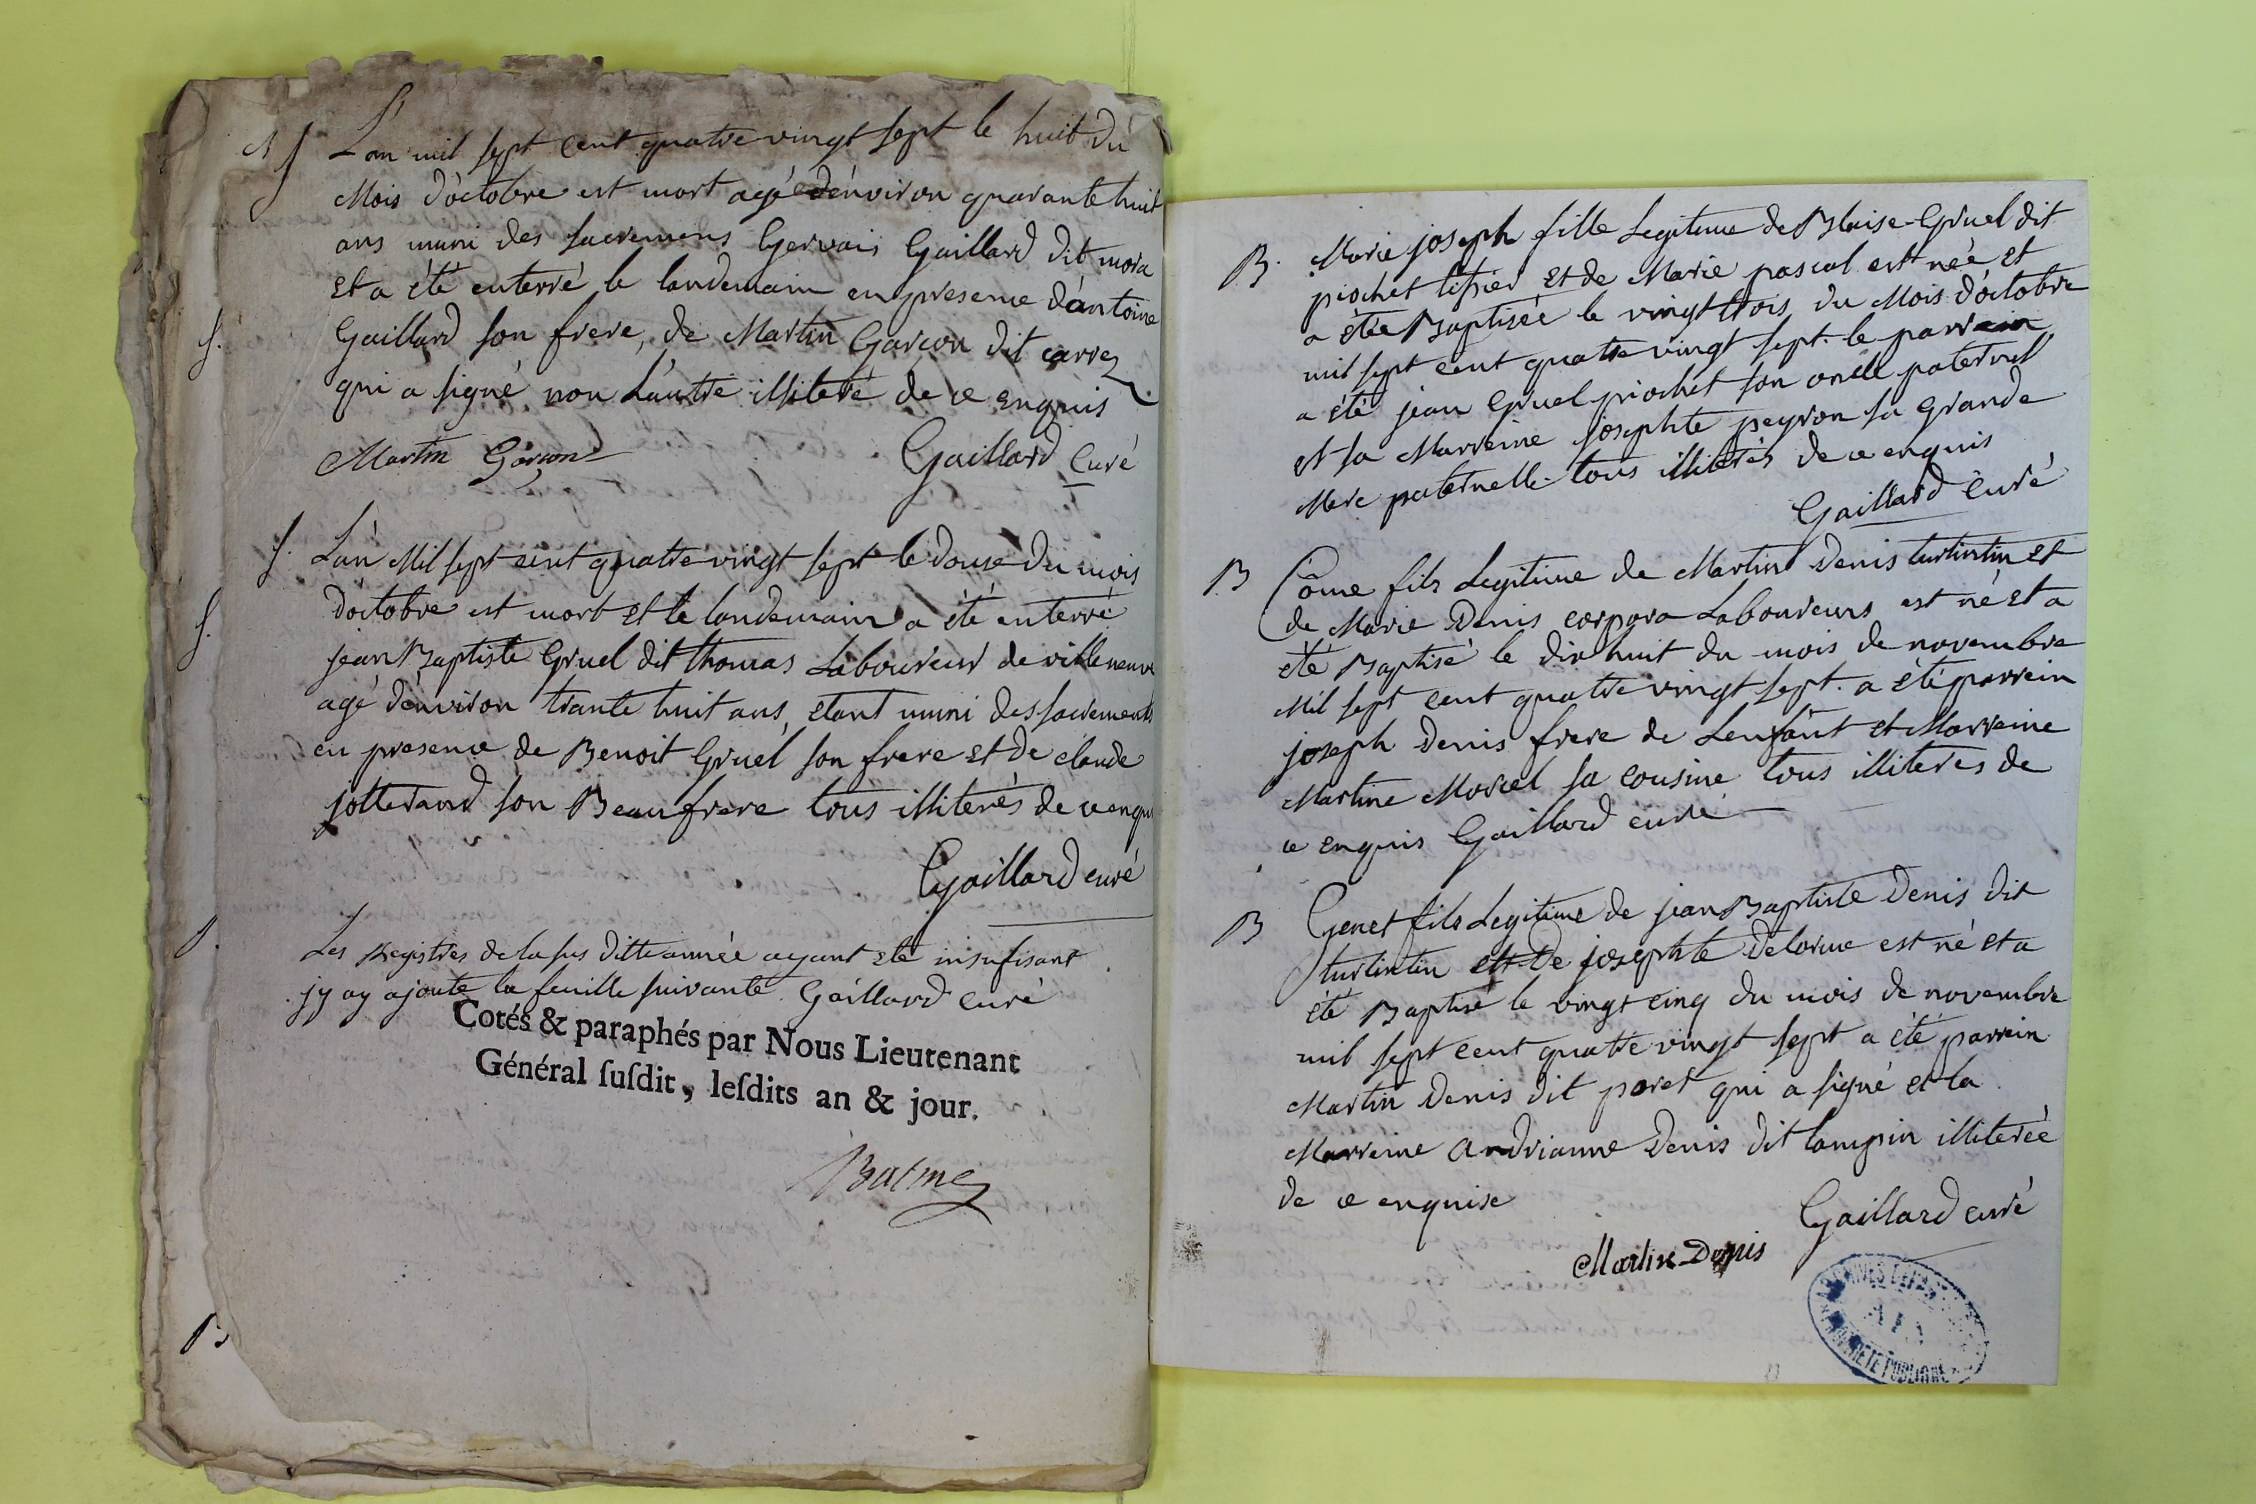 S L'an mil sept cent quatre vingt sept le huit du
Mois d'octobre est mort agé d'environ quarante huit
ans muni des sacremens Gervais Gaillard dit mora
et a été enterré le landemain en presence d'antoine
Gaillard son frere, de Martin Garçon dit carrez
qui a signé non L'autre illiteré de ce enquis
Martin Garçon Gaillard Curé
S. L'an Mil sept cent quatre vingt sept le douse du mois
d'octobre est mort et le landemain a été enterré
jean Baptiste Gruel dit thomas Laboureur de villeneuve
agé d'environ trante huit ans, etant muni des sacrements
en presence de Benoit Gruel son frere et de claude
jotterand son Beaufrere tous illiterés de ce enqui
Gaillard curé
Les Registres de la sus ditte année ayant été insufisant
j'y ay ajouté la feuille suivante Gaillard curé
Cotés & paraphés par Nous Lieutenant
Général ſuſdit, leſdits an & jour.
Balme
S.
S.
S.
B
B. Marie joseph fille Legitime de Blaise Gruel dit
piochet tissier et de Marie pascal est née et
a étée Baptisée le vingt trois du Mois d'octobre
mil sept cent quatre vingt sept. le parrein
a été jean Gruel piochet son oncle paternel
et la Marreine josephte peyron sa Grande
Mere paternelle tous illiterés de ce enquis
Gaillard curé
B Côme fils Legitime de Martin Denis turlintin et
de Marie Denis corpora Laboureurs est né et a
eté Baptisé le dix huit du mois de novembre
Mil sept cent quatre vingt sept. a été parrein
joseph Denis frere de L'enfant et Marreine
Martine Morel sa cousine tous illiteres de
ce enquis Gaillard curé
B Genet fils Legitime de jean Baptiste Denis dit
turlintin et de josephte Delorme est né et a
été Baptisé le vingt cinq du mois de novembre
mil sept cent quatre vingt sept a été parrein
Martin Denis dit poret qui a signé et la
Marreine Andrianne Denis dit lampin illiterée
de ce enquise Gaillard curé
Martin Denis
ARCHIVES
AIN
PROPRIETE PUBLIQUE